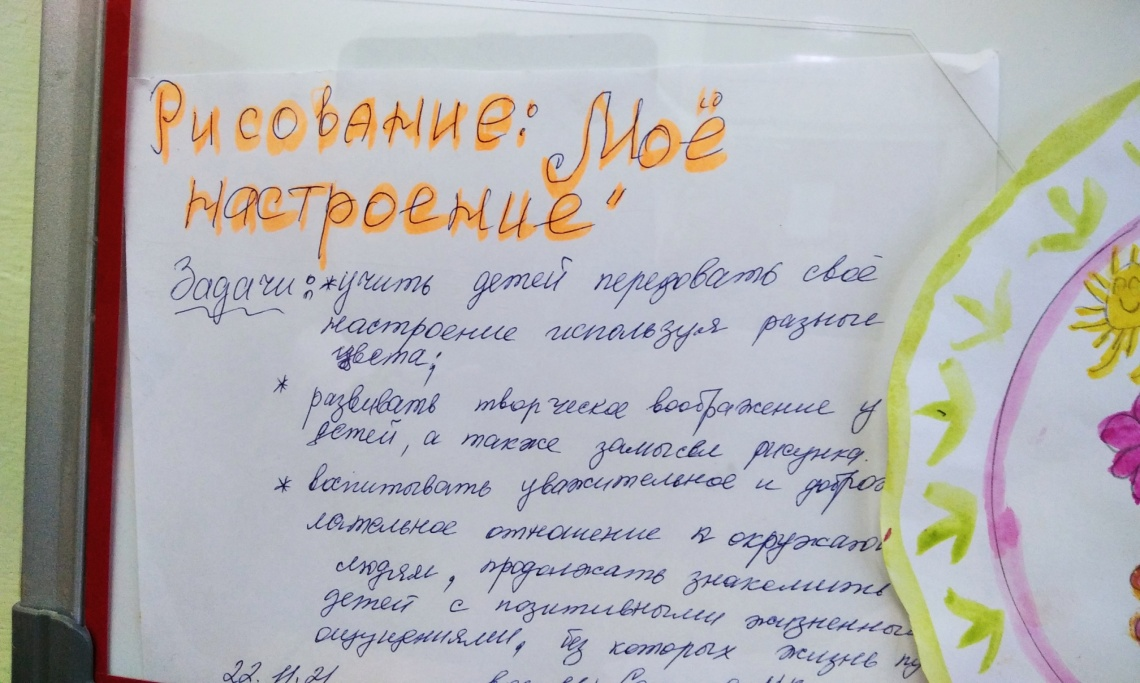 Рисование: „Моё
настроение"
Задачи: *учить детей передовать своё
настроение используя разные
цвета;
* развивать творческое воображение у
детей, а также замысел рисунка.
* воспитывать уважительное и доброж
лательное отношение к окружающ
людям, продолжать знакомить
детей с позитивными жизненным
ощущениями, без которых жизнь пу
22.11.21